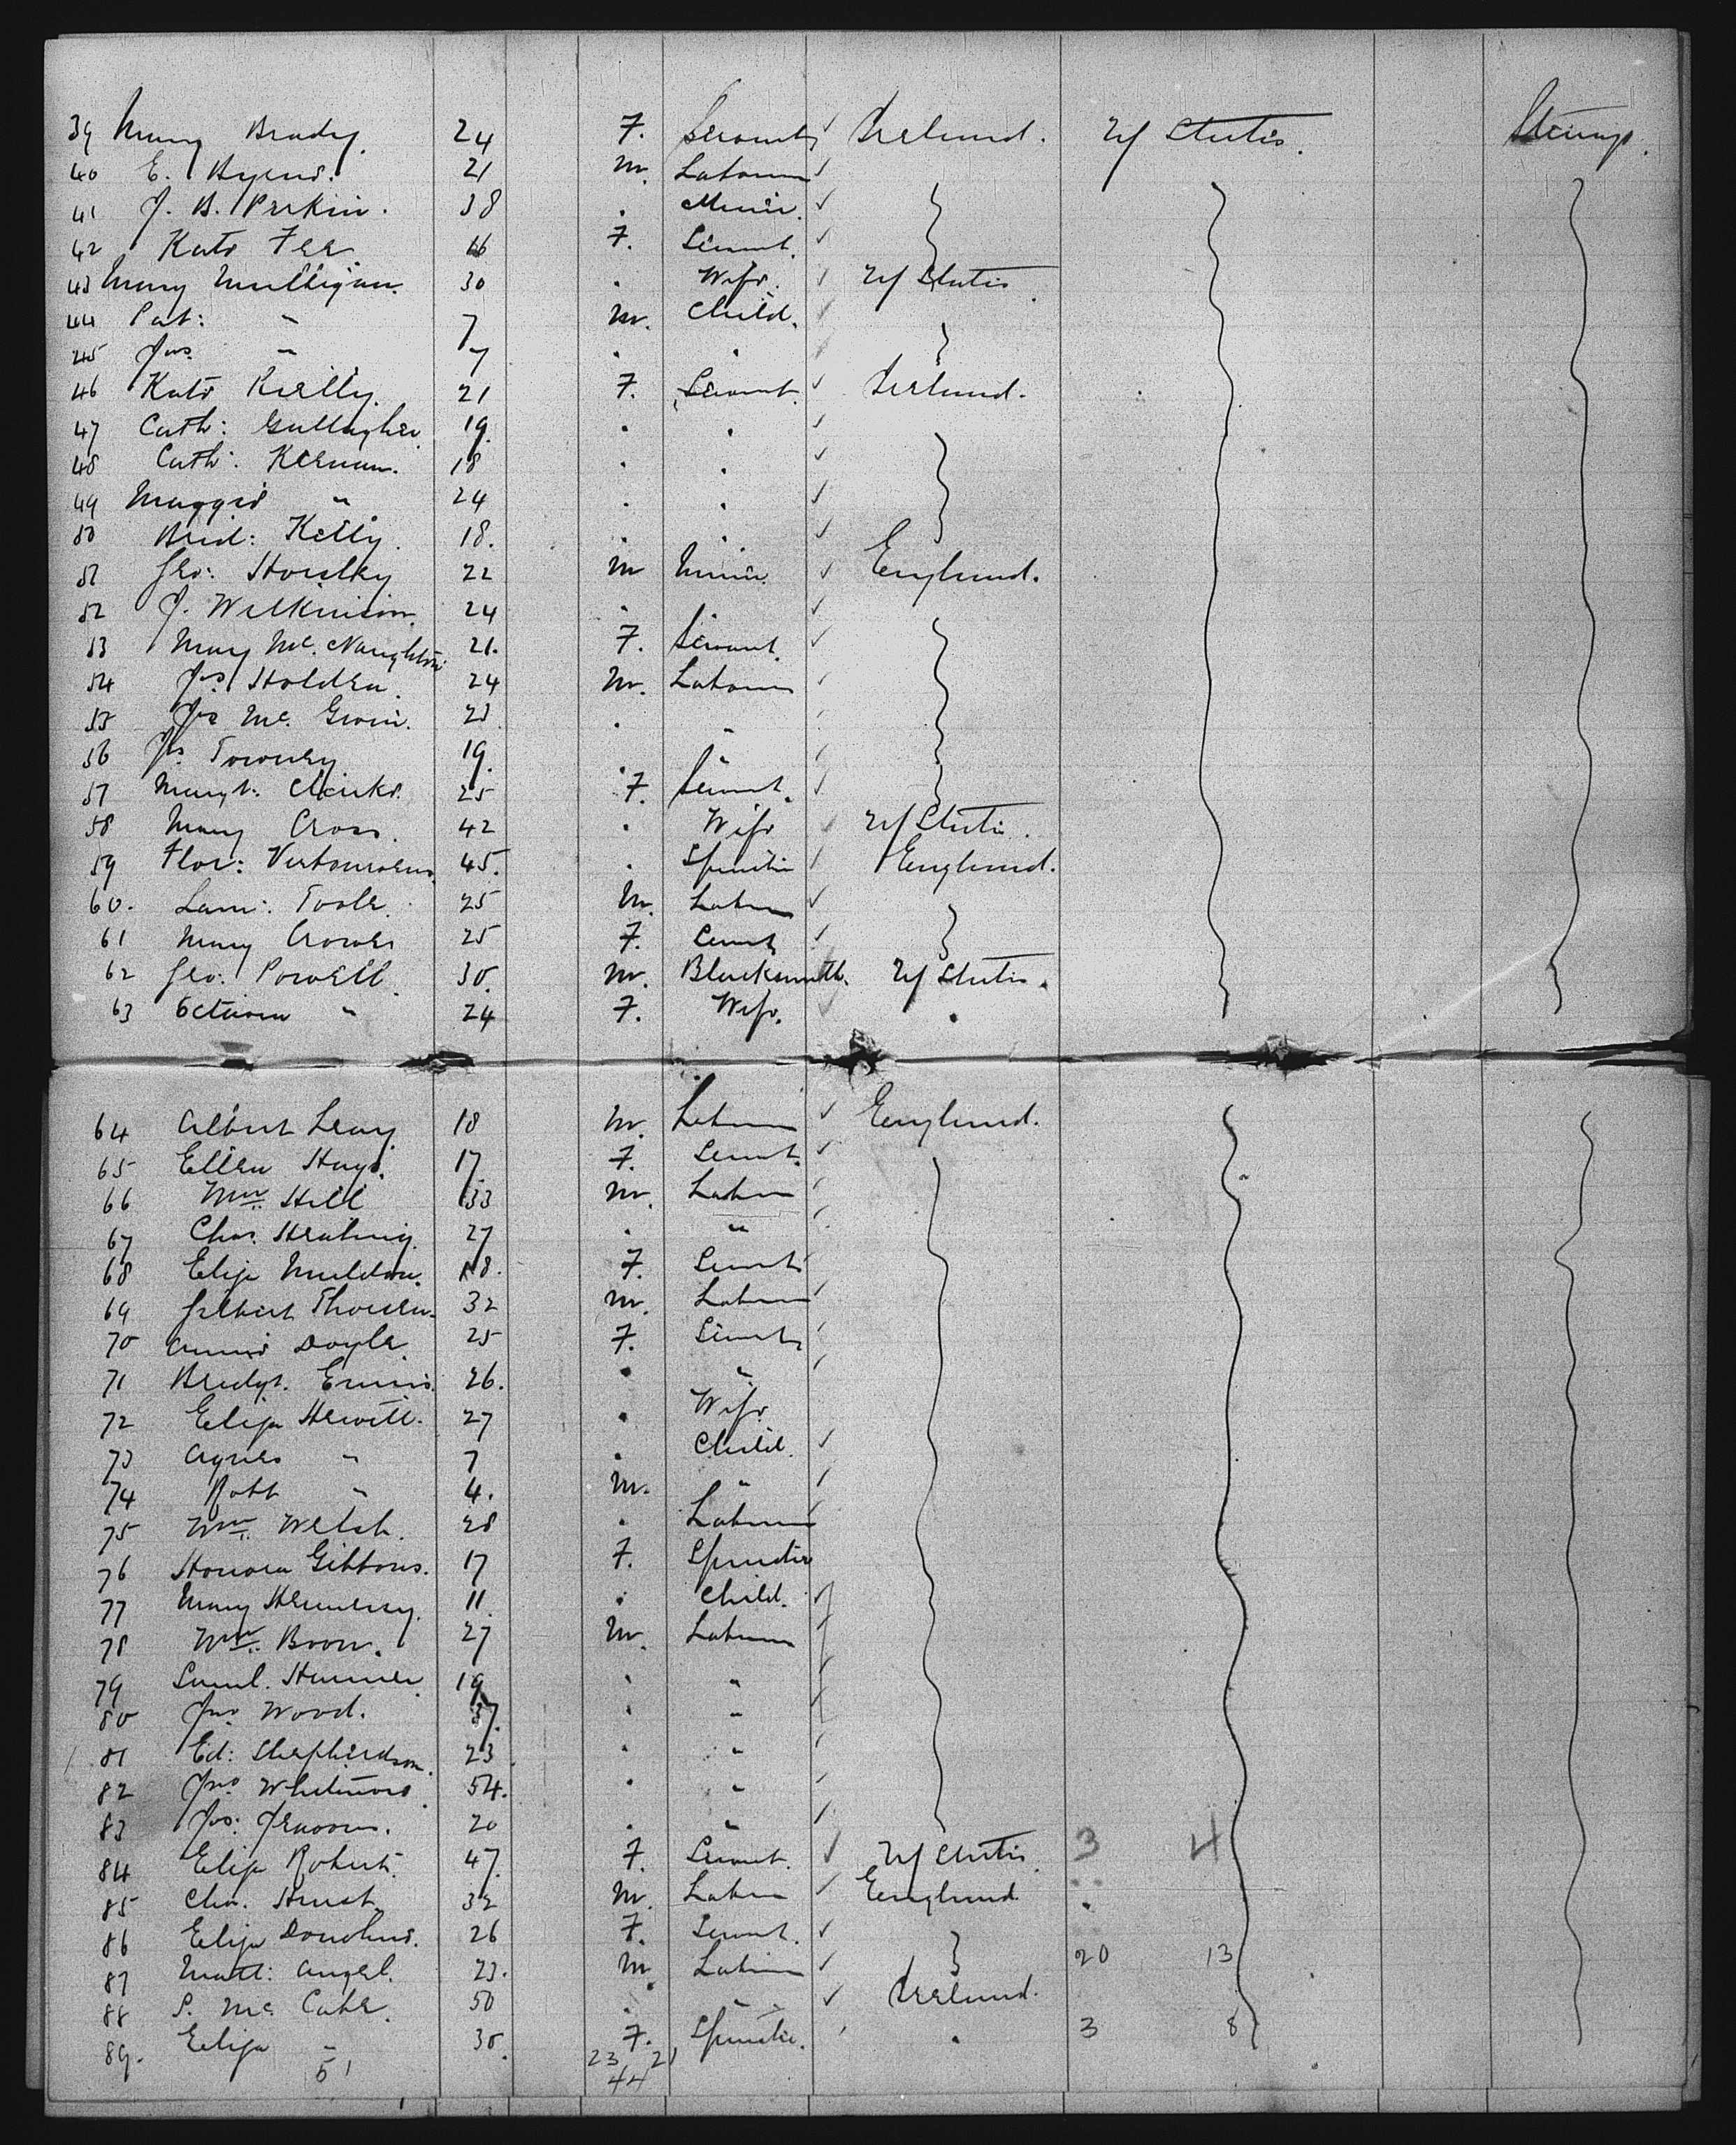 39 Mary Brady. 24 F. Servant Ireland. U/ States. Steerage.
40 E. Byrns. 21 M. Labourer
41 J. B. Perkin. 38 . Miner.
42 Kate Fee. 16 F. Servant.
43 Mary Mulligan. 30 . Wife. U/ States
44 Pat: " 7 M. Child.
45 Jas. " 7 . .
46 Kate Reilly. 21 F. Servant. Ireland.
47 Cath: Gallagher 19. . .
48 Cath: Kernan. 18 . .
49 Maggie " 24 . .
50 Brid: Kelly. 18. . .
51 Geo: Horsley 22 M Miner. England.
52 J. Wilkinson. 24 .
53 Mary Mc. Naughton 21. F. Servant.
54 Jas. Holden. 24 M. Labourer
55 Jas Mc. 23 . "
56 Jas. Towney 19. . "
57 Margt: Clarke. 25 F. Servant.
58 Mary Cross. 42 . Wife U/ States.
59 Flor: 45. . Spinster England.
60. Lam: Toole. 25 M. Labourer
61 Mary Crowe 25 F. Servt
62 Geo: Powell. 30. M. Blacksmith. U/ States.
63 " 24 F. Wife. .
64 Albert Leary. 18 M. Labourer England.
65 Ellen Hays. 17. F. Servt.
66 Wm. Hill 33 M. Labourer
67 Chas. 27 . "
68 Eliza Muldoon. 18. F. Servt
69 Gilbert 32 M. Labourer
70 Annie Doyle. 25 F. Servt
71 Bridgt. Ennis. 26. . "
72 Eliza Hewitt. 27 . Wife
73 Agnes " 7 . Child.
74 Robt " 4. M. "
75 Wm. Welsh. 28 . Labourer
76 Honora Gibbons. 17 F. Spinster
77 Mary Hennessy. 11. . Child.
78 Wm. Boon. 27 M. Labourer
79 Saml. 19. . "
80 Jno Wood. 37. . "
81 Ed: Shepherdson. 23 . "
82 Jno Whitmore 54. . "
83 Jos: 20 . "
84 Eliza Roberts. 47. F. Servant. U/ States. 3 4
85 Chas. Hurst. 32 M. Labourer England
86 Eliza Donohue. 26 F. Servant.
87 Matt: Angel. 23. M Labourer 20 13
88 P. Mc. Cabe. 50 . " Ireland.
89. Eliza " 30. F. Spinster. . 3 8
51 23 21
44